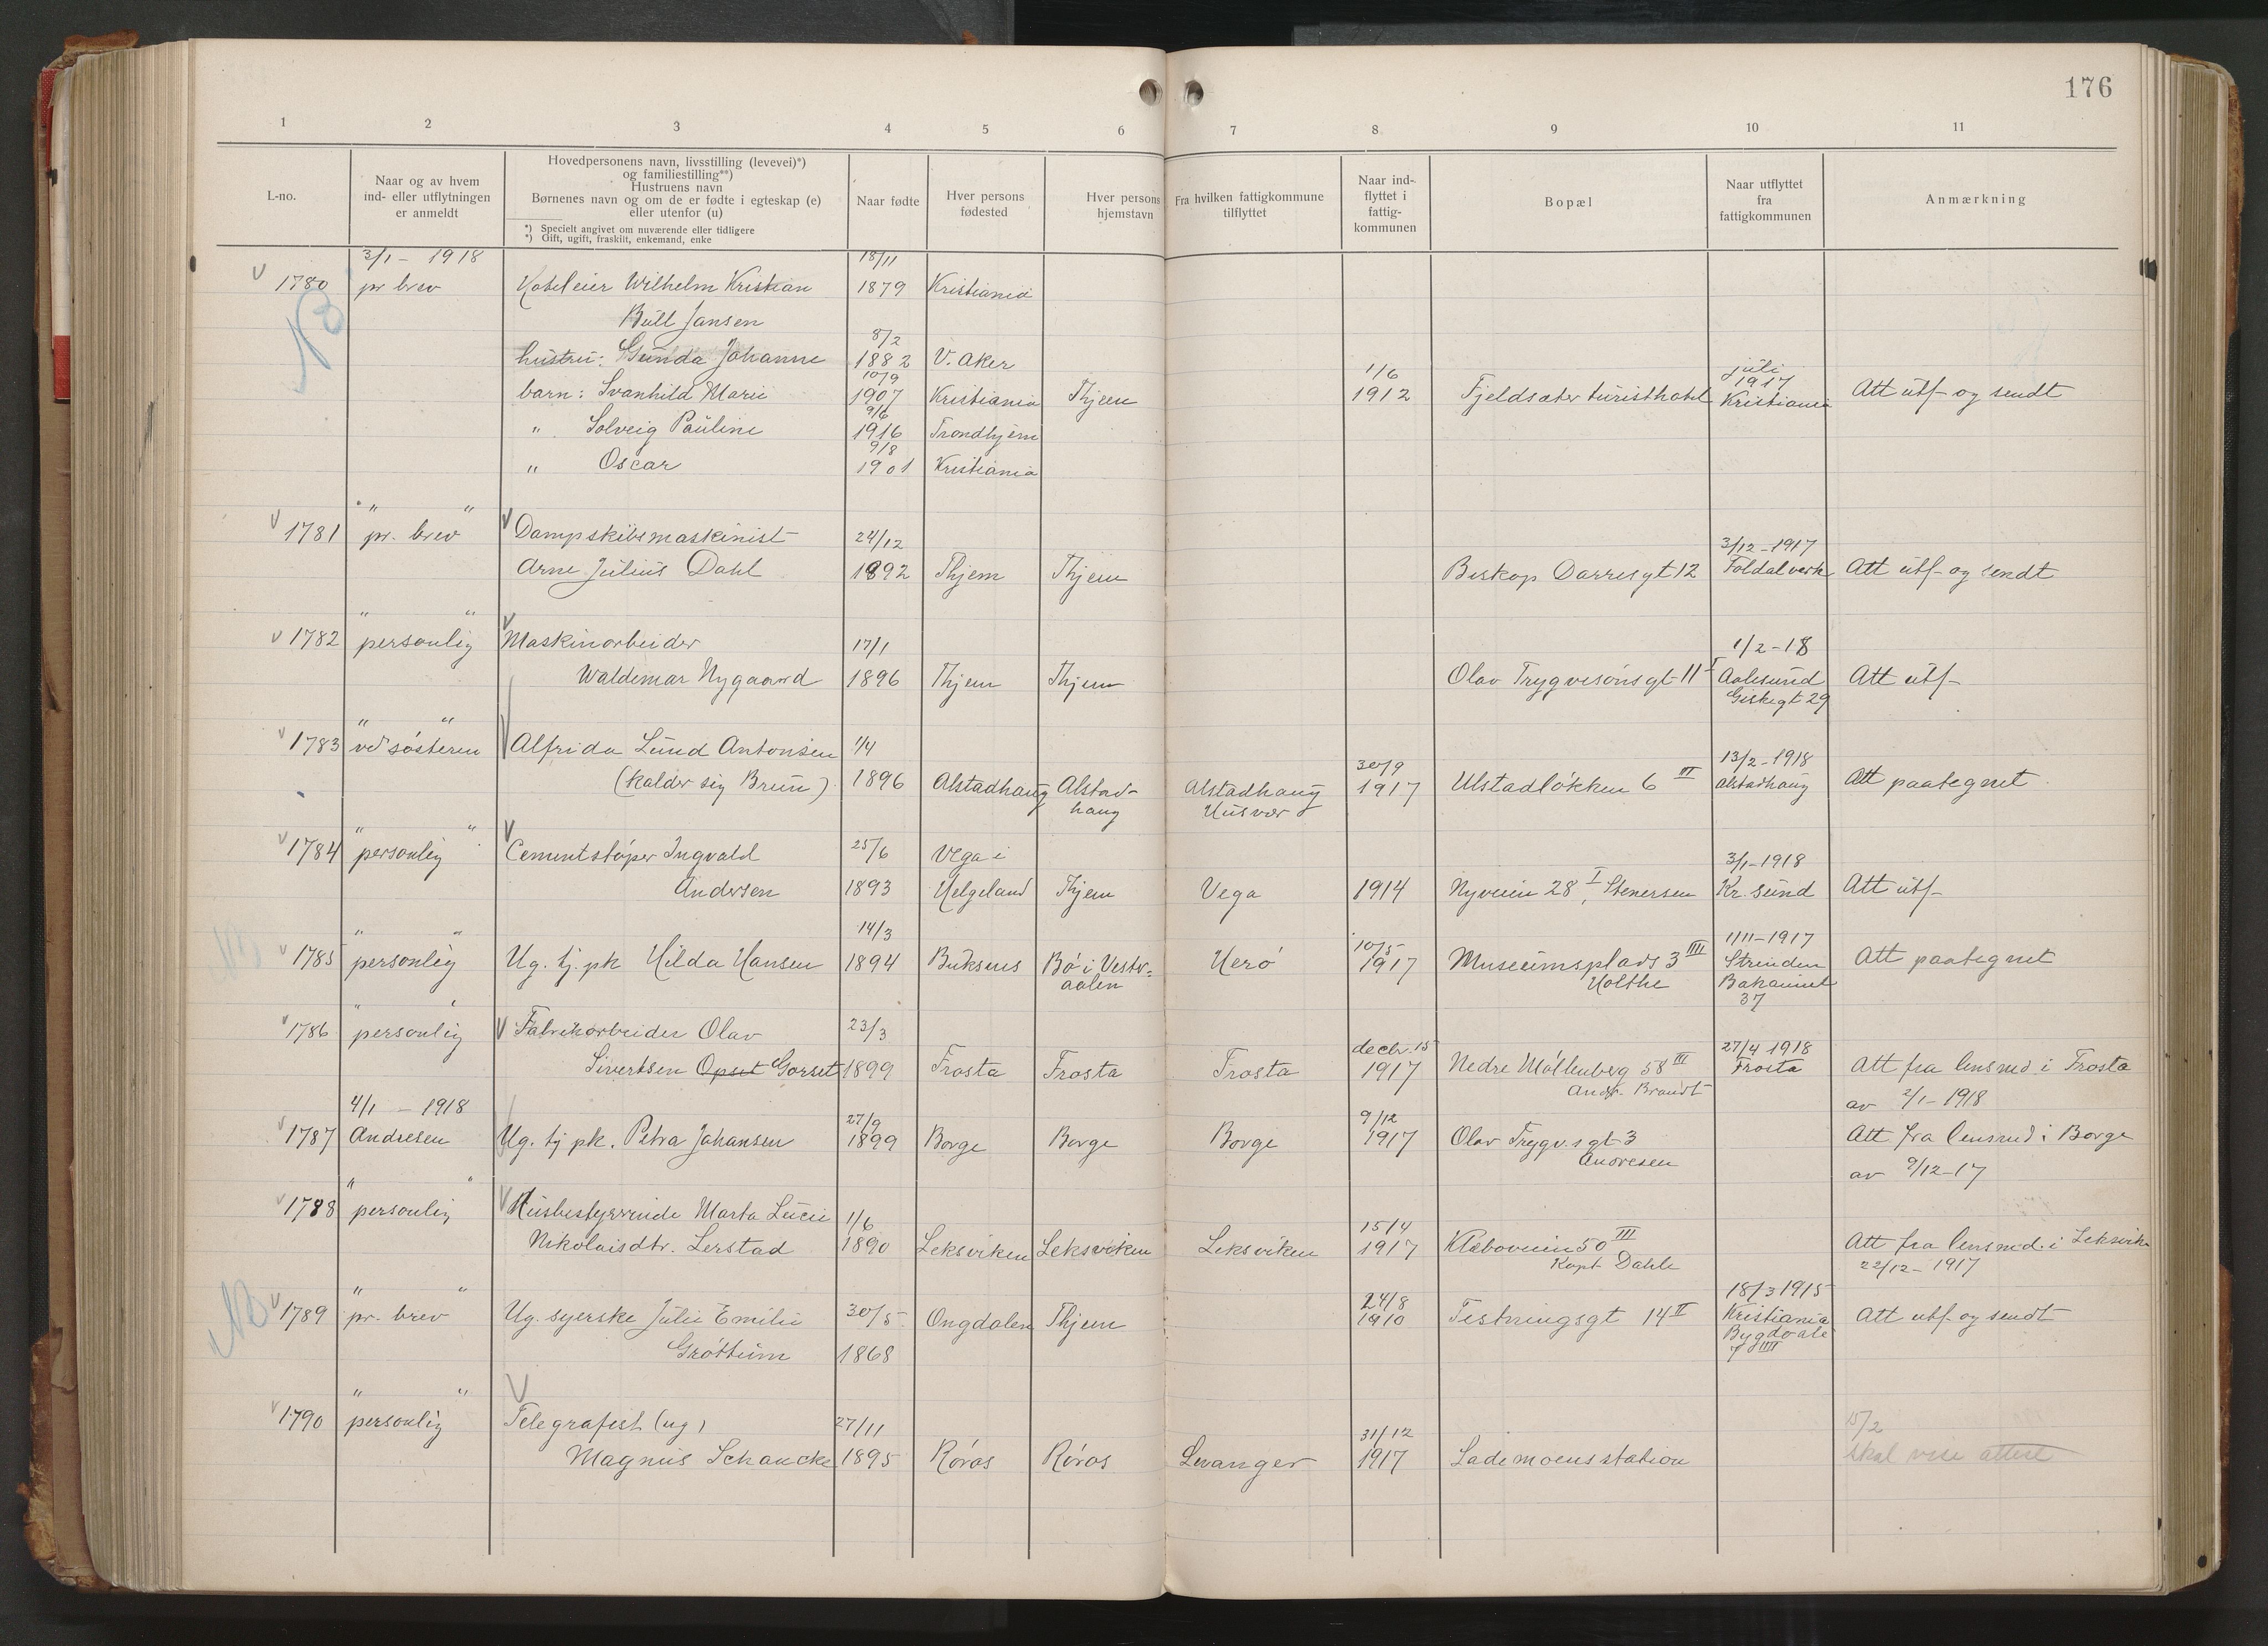 176
1 2 3 4 5 6 7 8 9 10 11
L-no.
Naar og av hvem
ind- eller utflytningen
er anmeldt
Hovedpersonens navn, livsstilling (levevei)*)
og familiestilling**)
Hustruens navn
Børnenes navn og om de er fødte i egteskap (e)
eller utenfor (u)
*) Specielt angivet om nuværende eller tidligere
*) Gift, ugift, fraskilt, enkemand, enke
Naar fødte
Hver persons
fødested
Hver persons
hjemstavn
Fra hvilken fattigkommune
tilflyttet
Naar ind-
flyttet i
fattig-
kommunen
Bopæl
Naar utflyttet
fra
fattigkommunen
Anmærkning
3/1 - 1918 18/11
V 1780 pr brev Hoteleier Wilhelm Kristian 1879 Kristiania
NB
Bull Jansen
8/2
hustru: Gunda Johanne 1882 V. Aker
10/9 1/6 juli 1917
barn: Svanhild Marie 1907 Kristiania Thjem 1912 Fjeldsæter turisthotel Kristiania Att utf- og sendt
9/6
" Solveig Pauline 1916 Trondhjem
9/8
" Oscar 1901 Kristiania
" "
V 1781 pr. brev V Dampskibsmaskinist 24/12 3/12-1917
Arne Julius Dahl 1892 Thjem Thjem Biskop Darresgt 12 Foldalverk Att utf- og sendt
" "
V 1782 personlig V Maskinarbeider 17/1 1/2-18
Waldemar Nygaard 1896 Thjem Thjem Olav Trygvesønsgt 11 I Aalesund Att utf-
Giskegt 29
" "
V 1783 ved søsteren V Alfrida Lund Antonsen 1/4 30/9 13/2-1918
(kalder sig Brun) 1896 Alstadhaug Alstad- Alstadhaug 1917 Ulstadløkken 6 II Alstadhaug Att paategnet
haug Husvær
" "
V 1784 personlig V Cementstøper Ingvald 25/6 Vega i 3/1-1918
Andersen 1893 Helgeland Thjem Vega 1914 Nyveien 28 I, Stenersen Kr. sund Att utf-
" " 14/3 10/5 1/11-1917
V 1785 personlig Ug. tj. pk Hilda Hansen 1894 Buksnes Bø i Vester- Herø 1917 Museumsplads 3 III Strinden Att paategnet
aalen Holthe
37
" "
V 1786 personlig V Fabrikarbeider Olav 23/3 decbr. 15 27/4 1918
Sivertsen Opset Gorset 1899 Frosta Frosta Frosta 1917 Nedre Møllenberg 58 III Frosta Att fra lensmd. i Frosta
Andr. Brandt av 2/1-1918
4/1 - 1918 27/9 9/12
V 1787 Andresen V Ug. tj pk. Petra Johansen 1899 Borge Borge Borge 1917 Olav Trygv.s gt 3 Att fra lensmd i Borge
Andresen av 9/12-17
" "
V 1788 personlig V Husbestyrerinde Marta Lucie 1/6 15/4
Nikolaisdtr. Lerstad 1890 Leksviken Leksviken Leksviken 1917 Klæboveien 50 III Att fra lensmd. i Leksvik
Kapt Dahle 22/12-1917
" " 24/8 18/3 1915
NB V 1789 pr. brev Ug. syerske Julie Emilie 30/5 Ongdalen Thjem 1910 Festningsgt 14 II Kristiania Att utf- og sendt
Grøttum 1868 Bygdø alé
7 IIII
" " V
V 1790 personlig Telegrafist (ug) 27/11 31/12 15/2
Magnus Schancke 1895 Røros Røros Levanger 1917 Lademoens station Skal vise attest